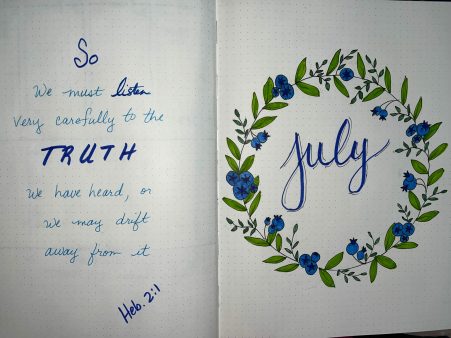 So
We must listen
very carefully to the
TRUTH
we have heard, or
we may drift
away from it
Heb. 2:1
july